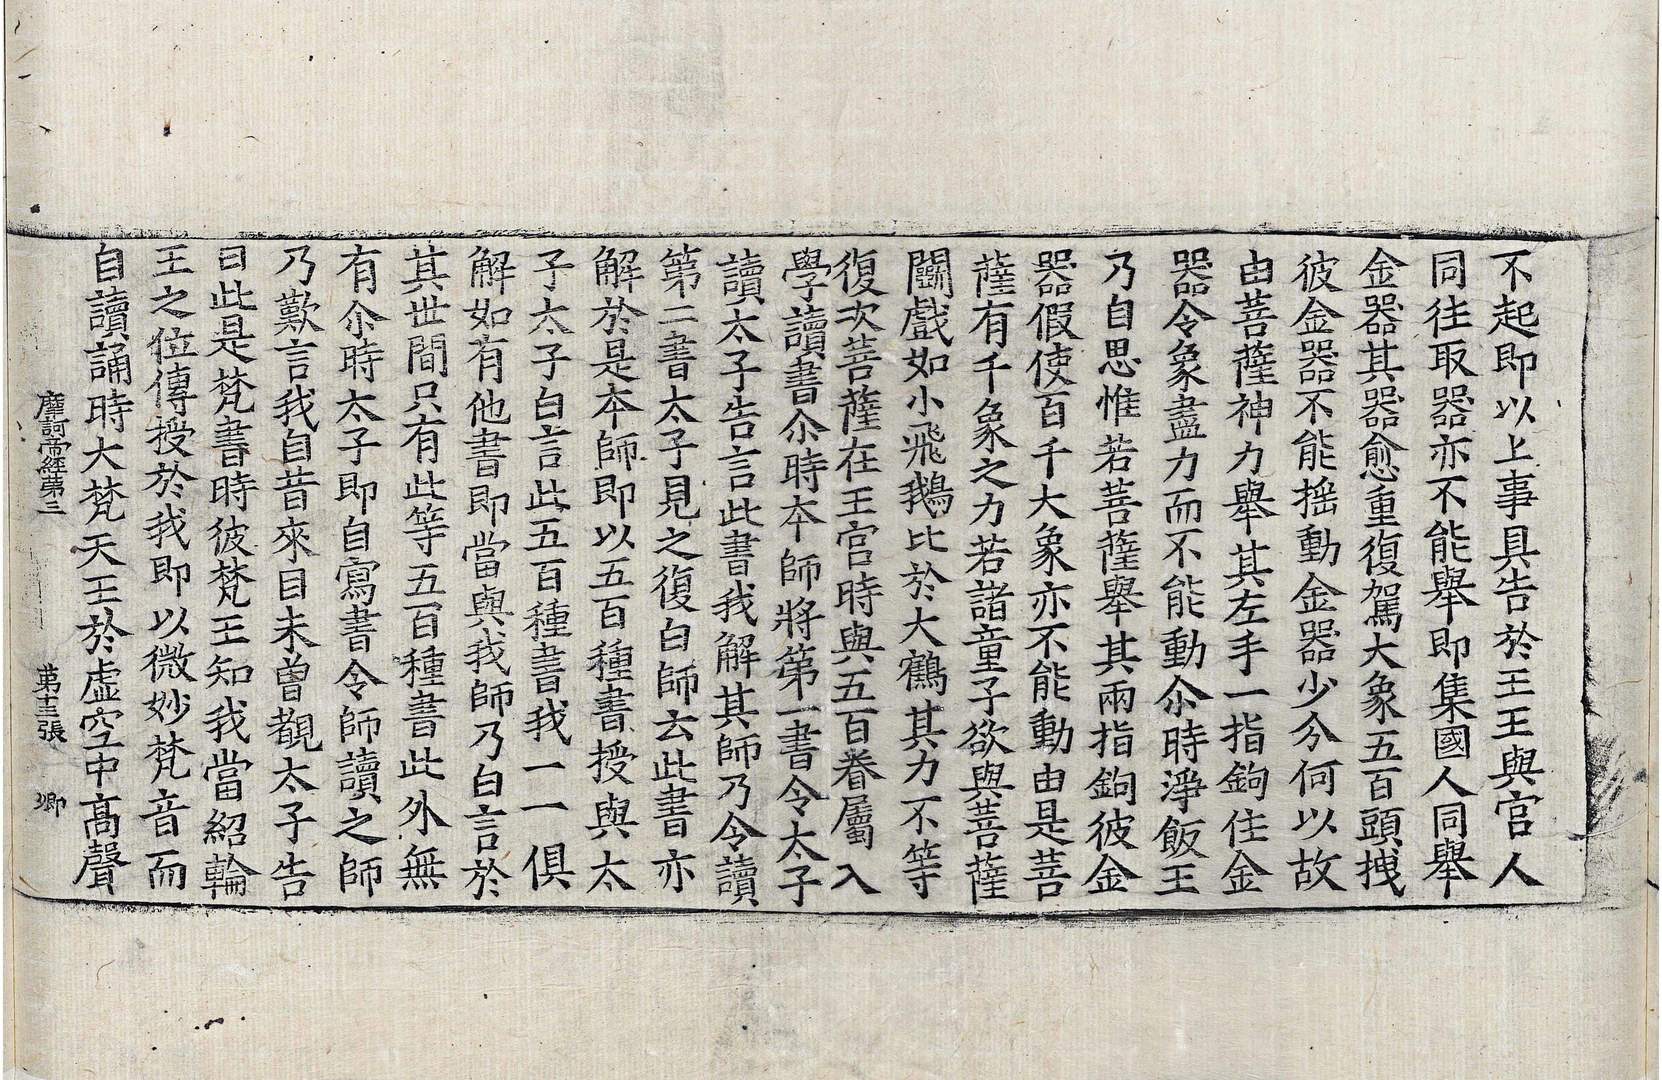 不起即以上事具告於王王與官人
同往取器亦不能舉即集國人同舉
金器其器愈重復駕大象五百頭拽
彼金器不能揺動金器少分何以故
由菩薩神力舉其左手一指鉤住金
器令象盡力而不能動尒時淨飯王
乃自思惟若菩薩舉其兩指鉤彼金
器假使百千大象亦不能動由是菩
薩有千象之力若諸童子欲與菩薩
鬬戲如小飛鵝比於大鶴其力不等
復次菩薩在王宮時與五百眷屬入
學讀書尒時本師將第一書令太子
讀太子告言此書我解其師乃令讀
第二書太子見之復白師云此書亦
解於是本師即以五百種書授與太
子太子白言此五百種書我一一俱
解如有他書即當與我師乃白言於
其世間只有此等五百種書此外無
有尒時太子即自寫書令師讀之師
乃歎言我自昔來目未曽觀太子告
曰此是梵書時彼梵王知我當紹輪
王之位傳授於我即以微妙梵音而
自讀誦時大梵天王於虛空中高聲
摩訶帝經第三 第十三張 卿